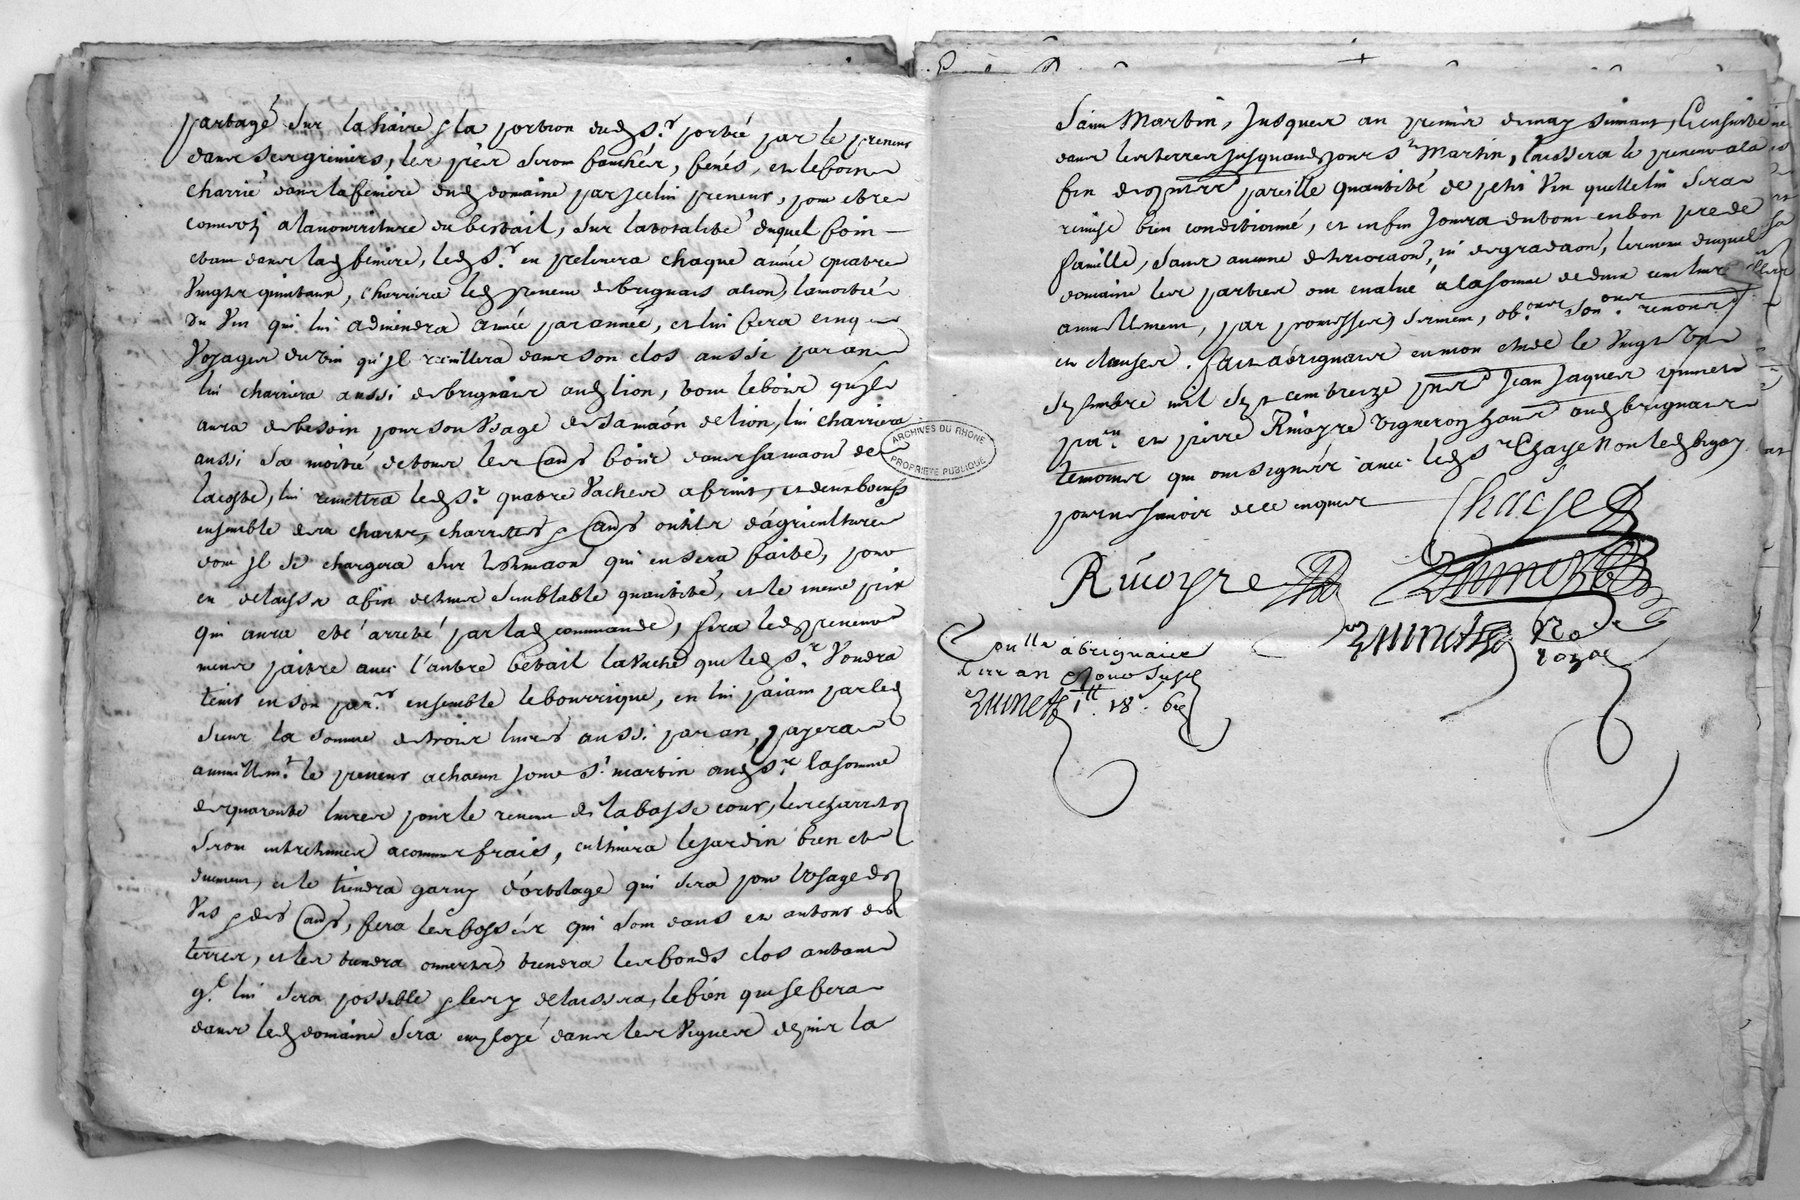 partagé sur la haire & la portion dud s.r portée par le preneur
dans ses greniers, les prés seront fauchés, fenés, et le foin
charrié dans la feniere dud domaine par jcelui preneur, pour etre
converty a la nourriture du bestail, sur la totalité duquel foin
etant dans lad feniere, led s.r en prelevera chaque année quatre
vingts quintaux, charriera led preneur de brignais a lion, la moitié
du vin qui lui adviendra année par année, et lui fera cinq
voyages du vin qu'jl cueillera dans son clos aussi par an
lui charriera aussi de brignais aud lion, tout le bois qu'jl
aura de besoin pour son usage de sa maōn de lion, lui charriera
aussi sa moitié de tous les bois dans sa maōn de
lacoste, lui remettra led s.r quatre vaches a fruit, et deux boeufs
ensemble des chars, charrettes & outils d'agriculture
dont jl se chargera sur l'estimaōn qui en sera faite, pour
en delaisser a fin de semblable quantité, et le meme prix
qui aura eté arreté par lad commande, fera led preneur
mener paitre avec l'autre betail la vache que led s.r voudra
tenir en son par.er ensemble le bourrique, en lui paiant par led
sieur la somme de trois livres aussi par an, payera
annuellem.t le preneur a chacun jour s.t martin aud s.r la somme
de quarante livres pour le revenu de la basse cour, les charrettes
seront entretenues a commun frais, cultivera le jardin bien et
duement, et le tiendra garny d'ortolage qui sera pour l'usage des
uns & des, fera les fossés qui sont dans et autour des
terres, et les tiendra ouverts, tiendra les fonds clos autant
q.l lui sera possible & les y delaissera, le fien que se fera
dans led domaine sera employé dans les vignes depuis la
saint Martin, jusques au premier de may suivant, & ensuite
dans les terres jusques aud jour s.t Martin, laissera le preneur a la
fin desd pareille quantité de petit vin quelle lui sera
remise bien conditionné, et enfin jouira du tout en bon pere de
famille, sans aucune deterioraōn, ni degradaōn, le revenu duquel
domaine les parties ont evalué a la somme de deux cent livres
annuellement, par promesses, serment, ob.ons renons
et clauses. fait a brignais en mon etude le vingt
septembre mil sept cent treize pnts Jean Jaques zumets
pra.en et pierre Rivoyre vigneron hant aud brignais
temoins qui ont signés avec led s.r Chaize non led
pour ne savoir de ce enquis
Chaize
Rivoyre
zumets
Coll.é a brignais
zumets
18